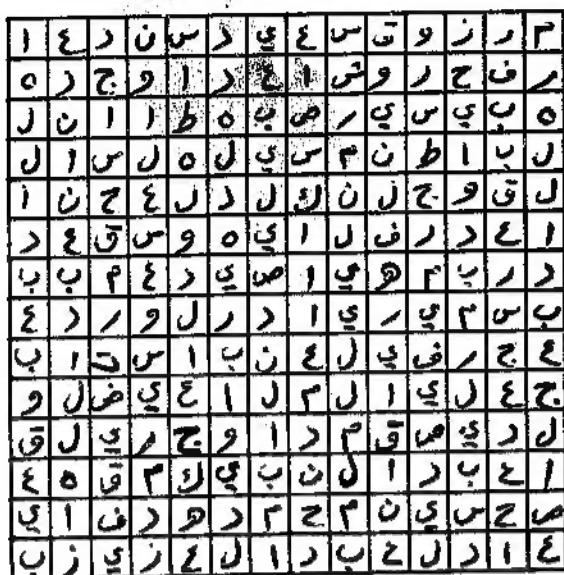 م ر ز و ق س ع ي د س ن د ع ا
ر ف ح ر و ش ا ع د ا و ج د ه
ه ب ي س ي ر ص ب ه ط ا ا ن ل
ل ب ا ط ن م س ي ل ه ل س ا ل
ل ق و ج ل ن ك ل د ل ع ح ن ا
ا ع د ر ف ل ا ي ه و س ق ع د
د ر ب م ه ي ا ص ي د ع م ب ب
ب س م ي ر ي ا د ر ل و ر د ع
ع ح ر ف ي ل ع ن ب ا س ت ا ب
ج ع ل ي ا ل م ل ا ع ي ض ل و
ل د ي ص ق م د ا و ج ر ي ل ق
ا ع ب د ا ل ن ب ي ك م ق ه ع
ص ح س ي ن م ح م د ه د ف ا ي
ع ا د ل ع ب د ا ل ع ز ي ز ب